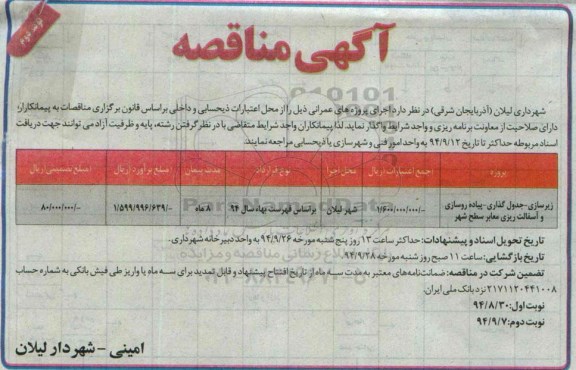 نوبت دوم
آگهی مناقصه
شهرداری لیلان (آذربایجان شرقی) در نظر دارد اجرای پروژه های عمرانی ذیل را از محل اعتبارات ذیحسابی و داخلی براساس قانون برگزاری مناقصات به پیمانکاران
دارای صلاحیت از معاونت برنامه ریزی و واجد شرایط واگذار نماید. لذا پیمانکاران واجد شرایط متقاضی با در نظر گرفتن رشته، پایه و ظرفیت آزاد می توانند جهت دریافت
اسناد مربوطه حداکثر تا تاریخ ۹۴/۹/۱۲ به واحد امور فنی و شهرسازی یا ذیحسابی مراجعه نمایند.
پروژه جمع اعتبارات (ریال) محل اجرا نوع قرارداد مدت پیمان مبلغ برآورد (ریال) مبلغ تضمینی (ریال)
زیرسازی-جدول گذاری-پیاده روسازی و آسفالت ریزی معابر سطح شهر ۱/۶۰۰/۰۰۰/۰۰۰/- شهر لیلان براساس فهرست بهاء سال ۹۴ ۸ ماه ۱/۵۹۹/۹۹۶/۶۳۹/- ۸۰/۰۰۰/۰۰۰/-
تاریخ تحویل اسناد و پیشنهادات: حداکثر ساعت ۱۳ روز پنج شنبه مورخه ۹۴/۹/۲۶ به واحد دبیرخانه شهرداری.
تاریخ بازگشایی: ساعت ۱۱ صبح روز شنبه مورخه ۹۴/۹/۲۸
تضمین شرکت در مناقصه: ضمانت نامه های معتبر به مدت سه ماه از تاریخ افتتاح پیشنهاد و قابل تمدید برای سه ماه یا واریز طی فیش بانکی به شماره حساب
۲۱۷۱۱۲۰۴۴۱۰۰۸ نزد بانک ملی ایران.
نوبت اول: ۹۴/۸/۳۰
نوبت دوم: ۹۴/۹/۷
امینی - شهردار لیلان